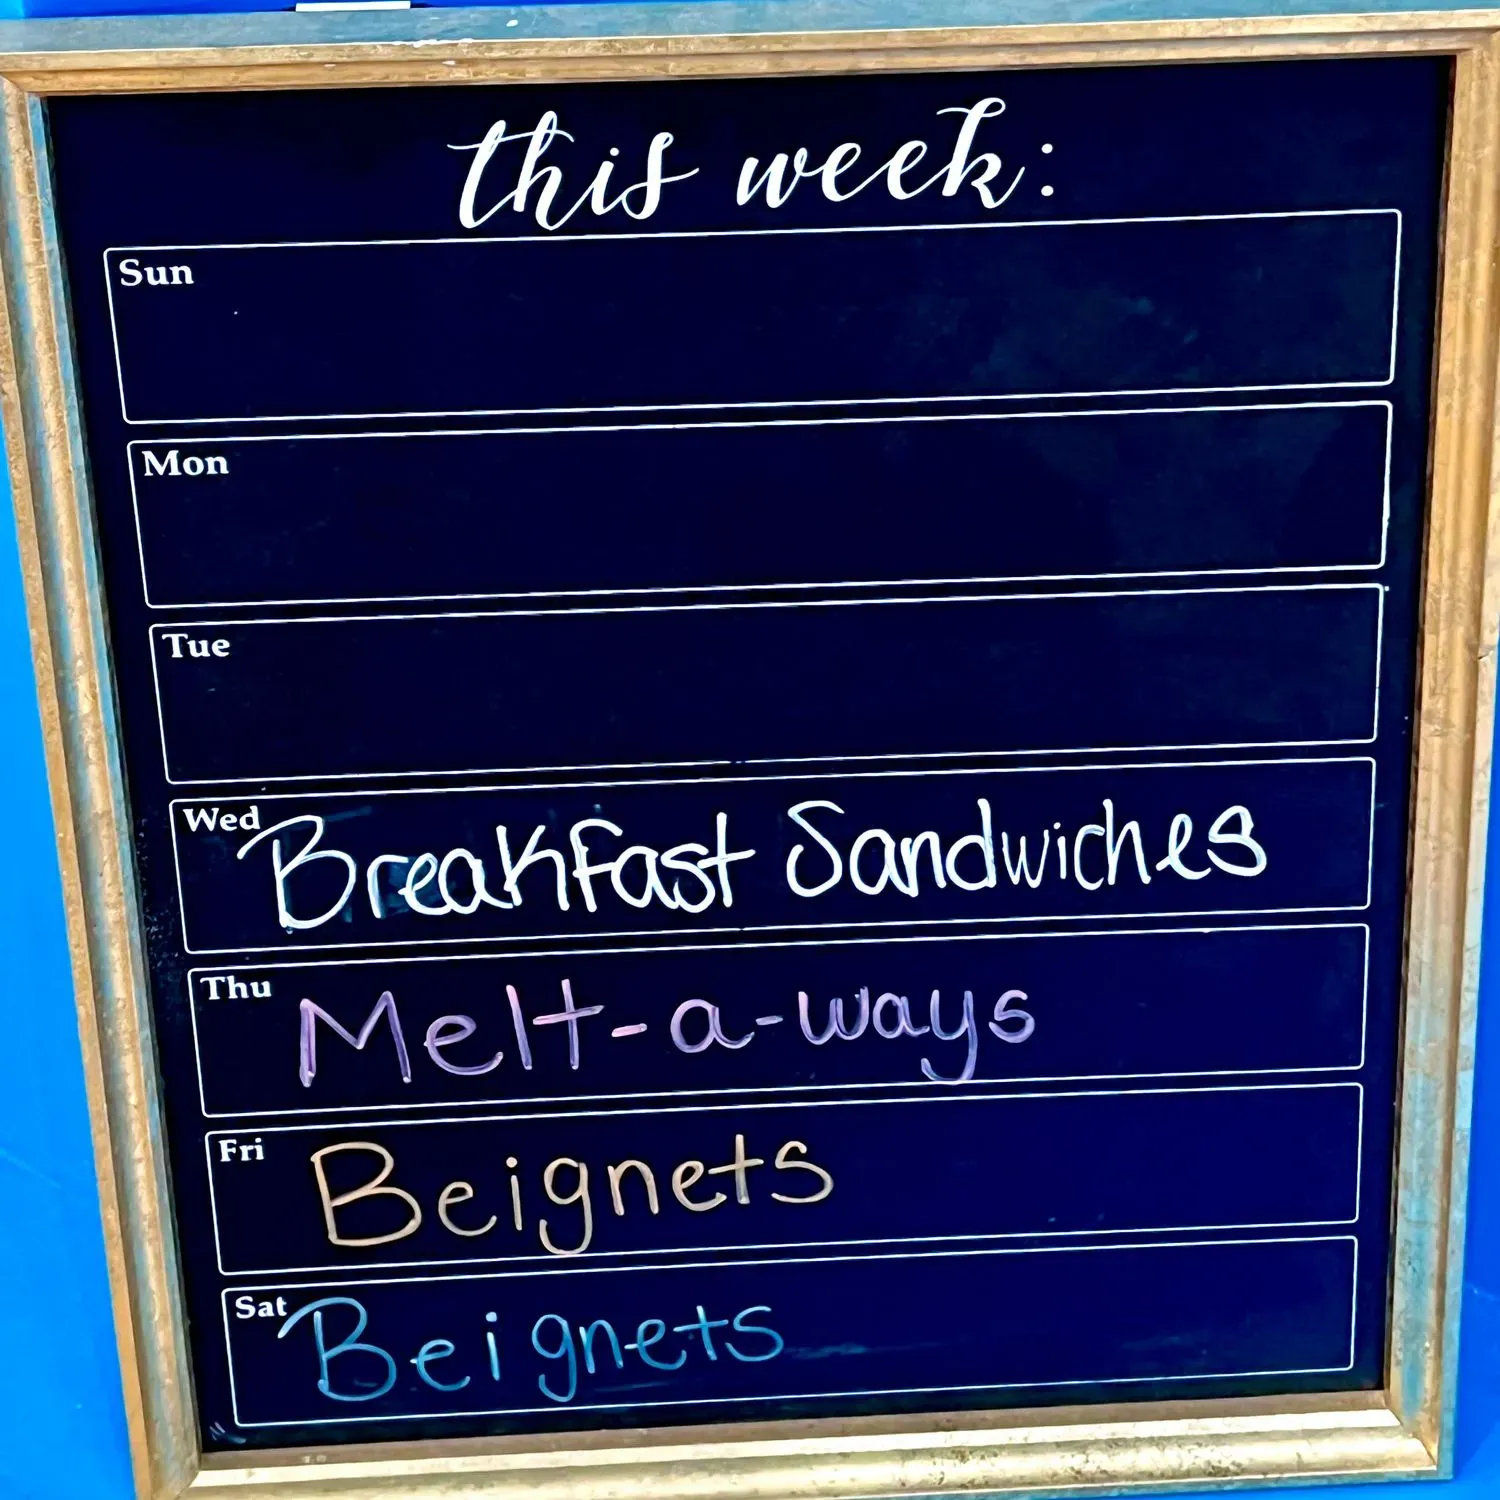 this week:
Sun
Mon
Tue
Wed Breakfast Sandwiches
Thu Melt-a-ways
Fri Beignets
Sat Beignets